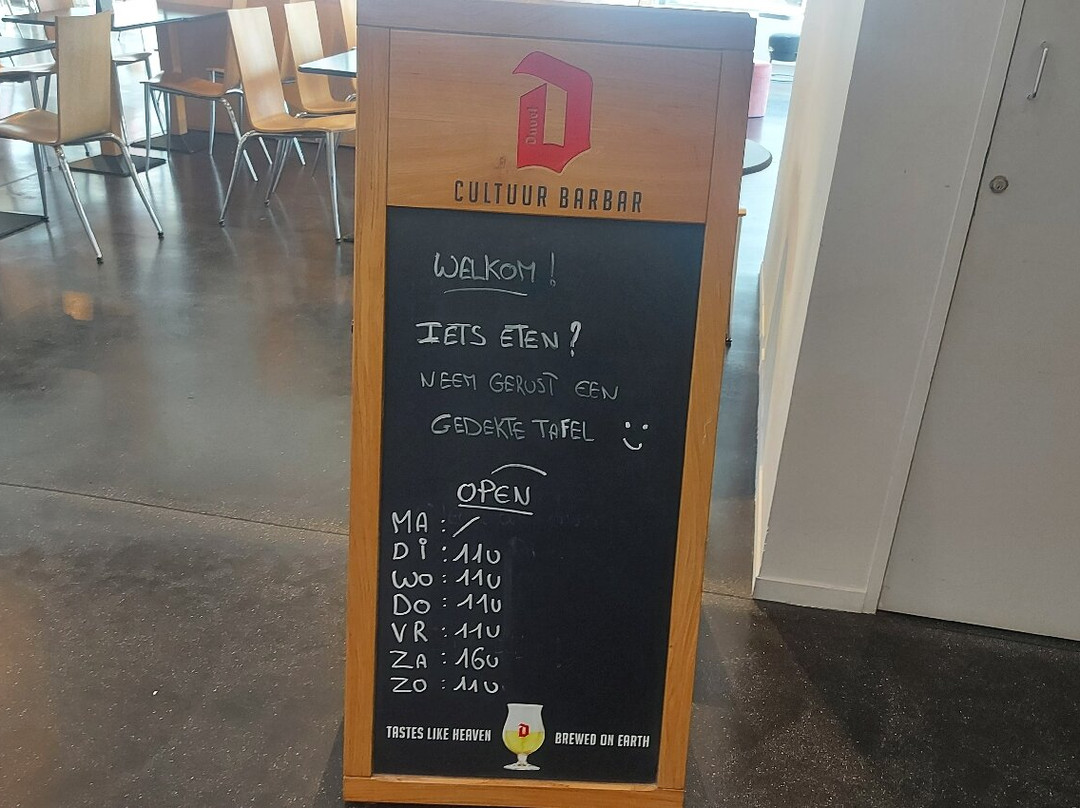 Duvel
CULTUUR BARBAR
WELKOM!
IETS ETEN?
NEEM GERUST EEN
GEDEKTE TAFEL
OPEN
MA : /
Di : 11U
WO : 11U
DO : 11U
VR : 11U
ZA : 16U
ZO : 11U
TASTES LIKE HEAVEN BREWED ON EARTH